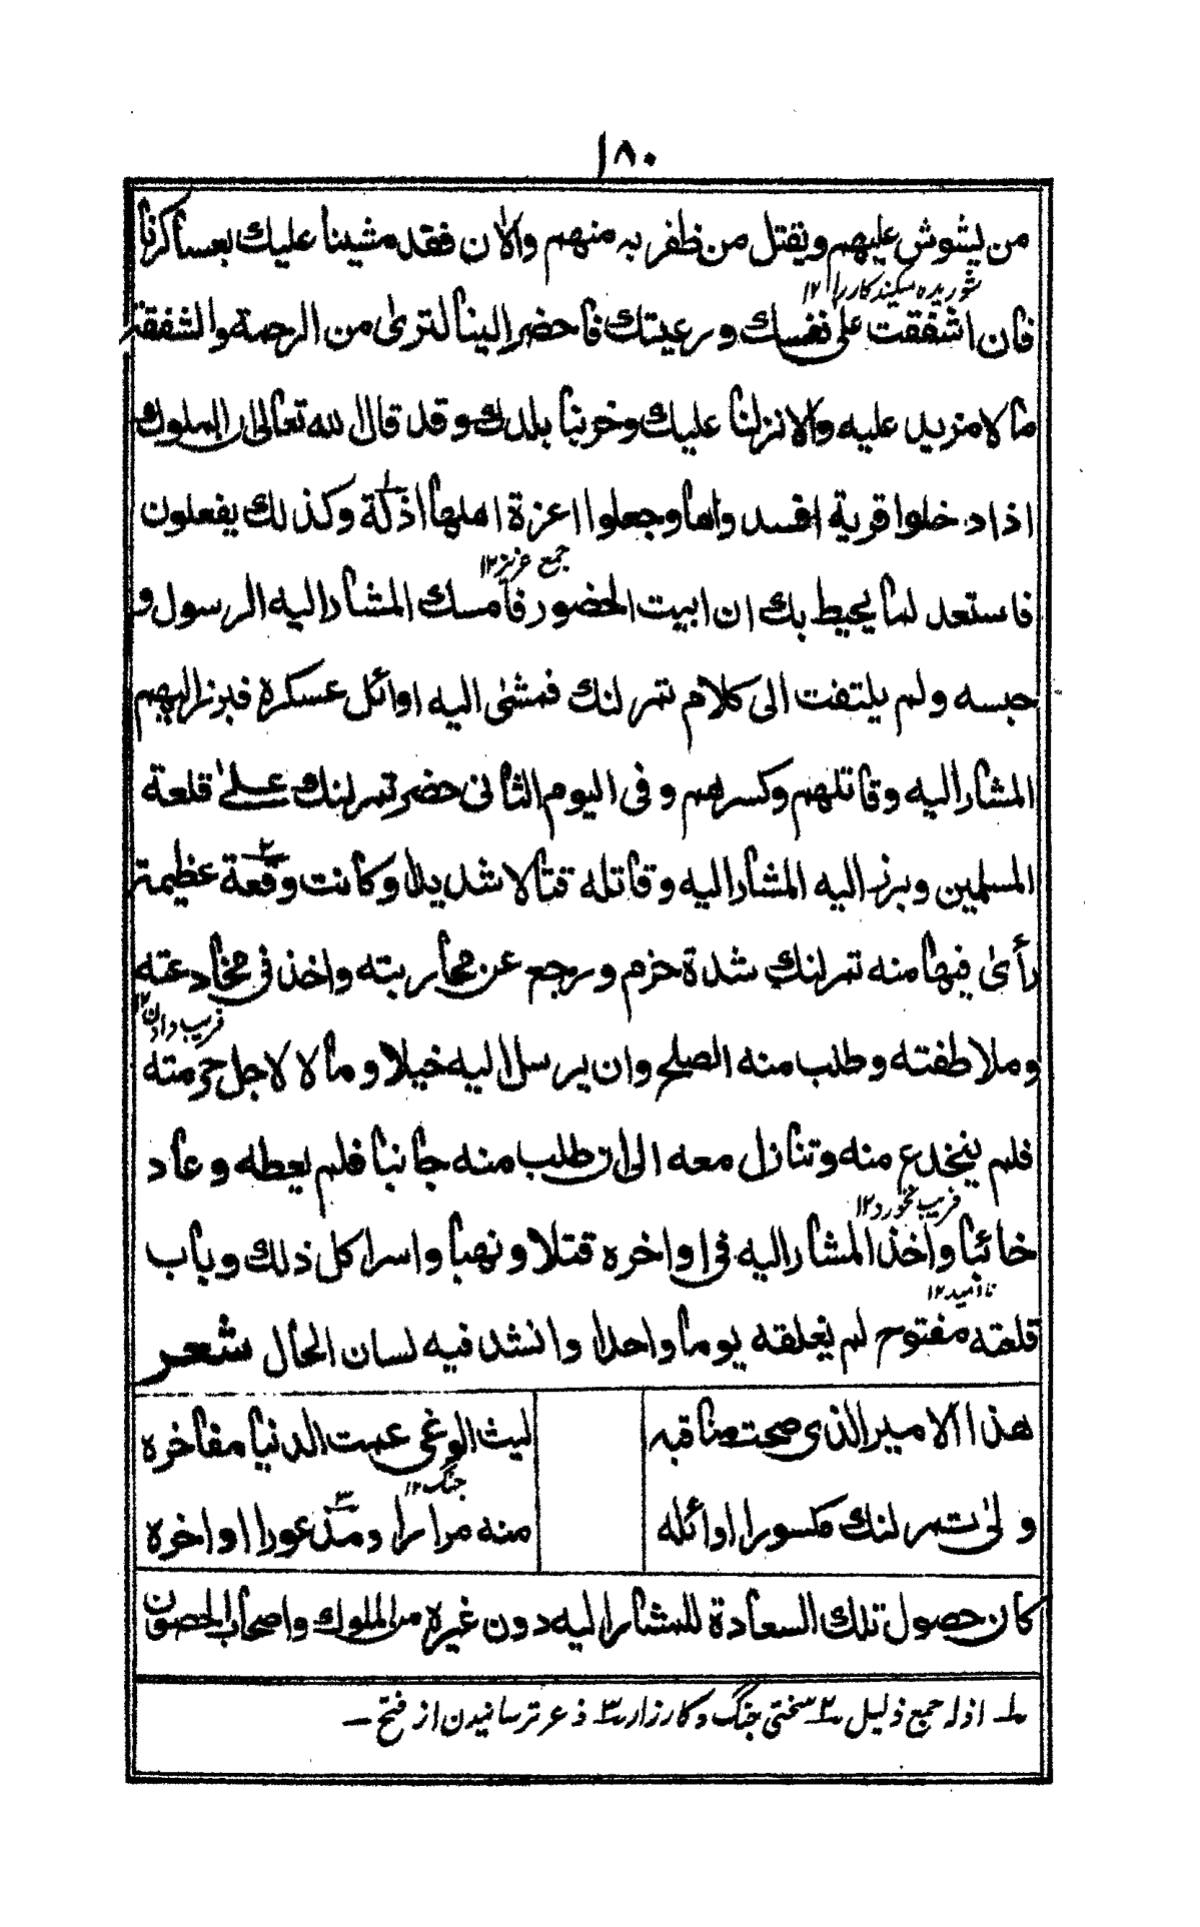 ١٨٠
من يشوش عليهم ويقتل من ظفر به منهم والان فقد مشينا عليك بعساكرنا
شوريده ميكند كار را ١٢
فان اشفقت على نفسك ورعيتك فاحضر الينا لترى من الرحمة والشفقة
ما لا مزيد عليه والا نزلنا عليك وخربنا بلدك وقد قال الله تعالى ان الملوك
اذا دخلوا قرية افسدواها وجعلوا اعزة اهلها اذلة وكذلك يفعلون
جمع عزيز ١٢
فاستعد لما يحيط بك ان ابيت الحضور فامسك المشار اليه الرسول و
حبسه ولم يلتفت الى كلام تمر لنك فمشى اليه اوائل عسكره فبرز اليهم
المشار اليه وقاتلهم وكسرهم وفى اليوم الثانى حضر تمر لنك على قلعة
المسلمين وبرز اليه المشار اليه وقاتله قتالا شديدا وكانت وقعة عظيمة
رأى فيها منه تمر لنك شدة حزم ورجع عن محاربته واخذ فى مخادعته
فريب دادن ١٢
وملاطفته وطلب منه الصلح وان يرسل اليه خيلا ومالا لاجل حرمته
فلم ينخدع منه وتنازل معه الى ان طلب منه جانبا فلم يعطه وعاد
فريب نخورد ١٢
خائبا واخذ المشار اليه فى اواخره قتلا ونهبا واسرا كل ذلك وباب
نا اميد ١٢
قلعته مفتوح لم يغلقه يوما واحدا وانشد فيه لسان الحال شعر
هذا الامير الذى صحت مناقبه ليث الوغى عمت الدنيا مفاخره
جنگ ١٢
ولى تمر لنك مكسورا اوائله منه مرارا ومذعورا اواخره
كان حصول تلك السعادة للمشار اليه دون غيره من الملوك واصحاب الحصون
١ـ اذله جمع ذليل ٢ـ سختى جنگ وكارزار ٣ـ ذعر ترسانيدن از فتح ـ